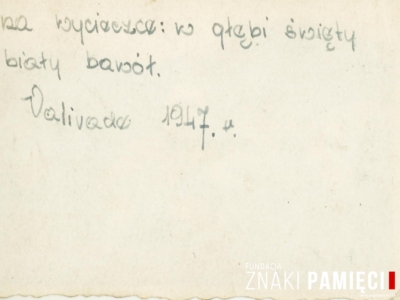 na wycieczce: w głębi święty
biały bawół.
Valivade 1947. r.
FUNDACJA
ZNAKI PAMIĘCI